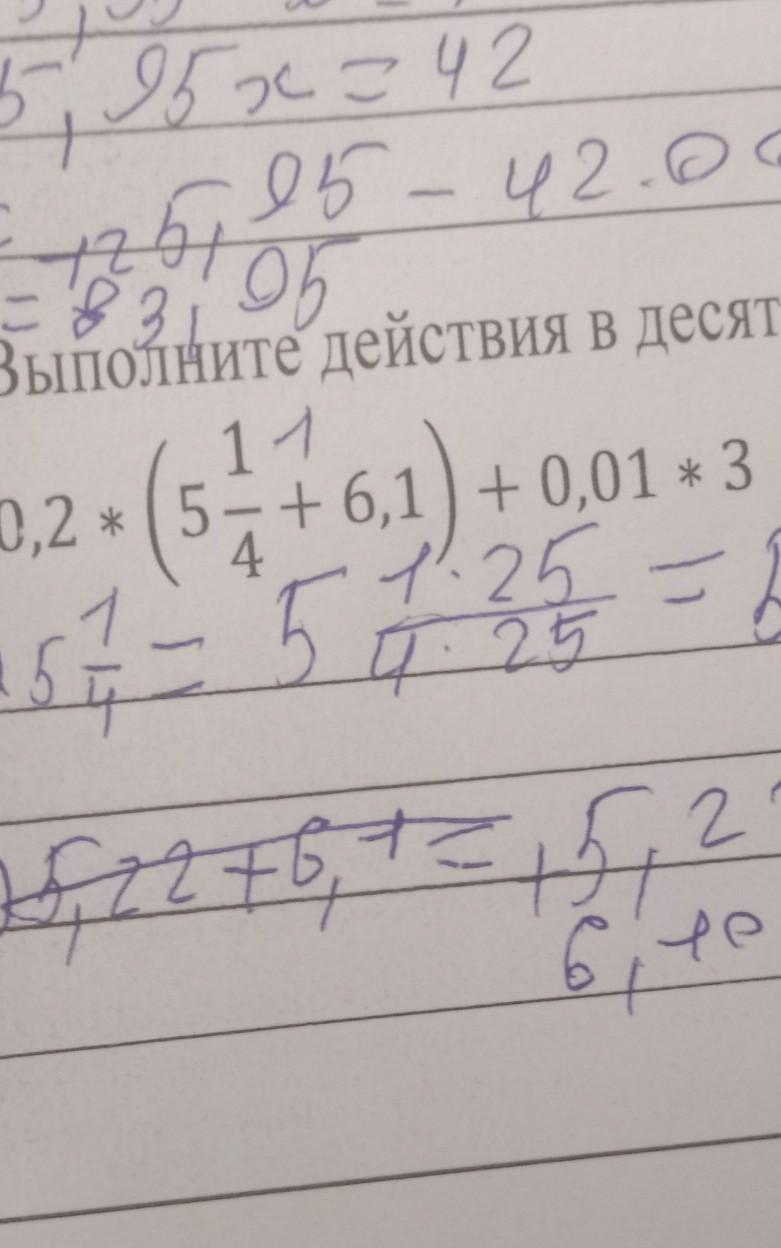 5,95x = 42
125,95 - 42.0
= 83,95
Выполните действия в десят
0,2 * (5 1/4 + 6,1) + 0,01 * 3
1
5 1/4 = 5 1·25/4·25 =
5,22+6,1= +5,2
6,10